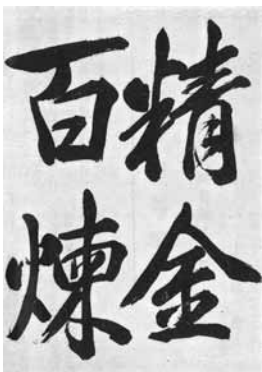 精金
百煉